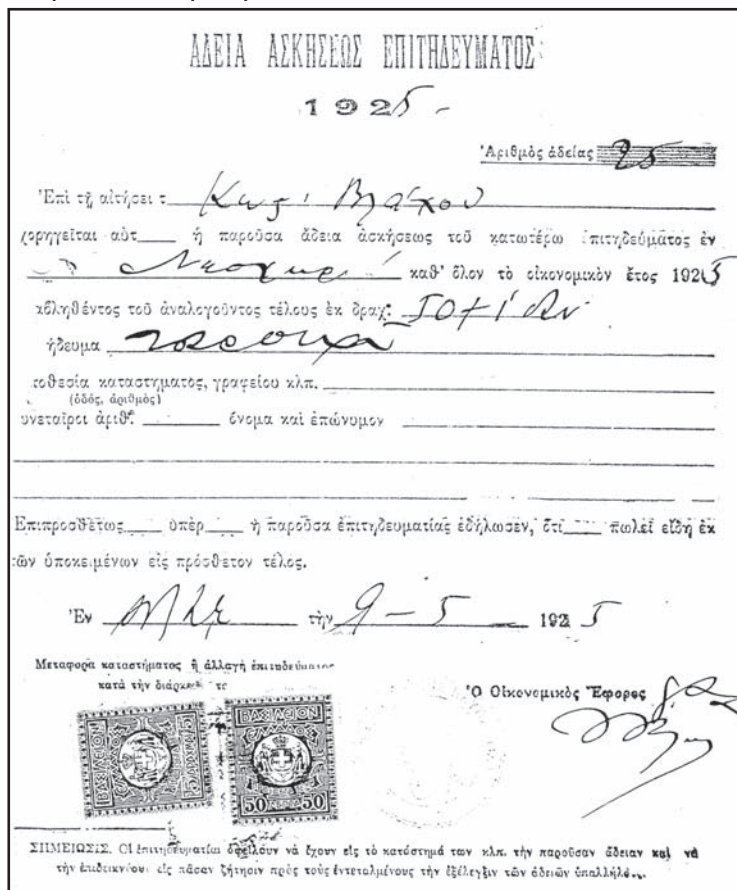 ΑΔΕΙΑ ΑΣΚΗΣΕΩΣ ΕΠΙΤΗΔΕΥΜΑΤΟΣ
1925
Ἀριθμὸς ἀδείας 25
Ἐπὶ τῇ αἰτήσει τ Κωσ. Βλάχου
χορηγεῖται αὐτ ἡ παροῦσα ἄδεια ἀσκήσεως τοῦ κατωτέρω ἐπιτηδεύματος ἐν
καθ' ὅλον τὸ οἰκονομικὸν ἔτος 1925
αβληθέντος τοῦ ἀναλογοῦντος τέλους ἐκ δραχ:
ήδευμα
ποθεσία καταστήματος, γραφείου κλπ.
(ὁδός, ἀριθμὸς)
υνεταῖροι ἀριθ. ὄνομα καὶ ἐπώνυμον
Ἐπιπροσθέτως ὑπὲρ ἡ παροῦσα ἐπιτηδευματίας ἐδήλωσεν, ὅτι πωλεῖ εἴδη ἐκ
τῶν ὑποκειμένων εἰς πρόσθετον τέλος.
Ἐν τὴν 9-5 1925
Μεταφορὰ καταστήματος ἢ ἀλλαγὴ ἐπιτηδεύματος
κατὰ τὴν διάρκειαν το
Ὁ Οἰκονομικὸς Ἔφορος
ΒΑΣΙΛΕΙΟΝ
ΒΑΣΙΛΕΙΟΝ
50 ΛΕΠΤΑ 50
ΣΗΜΕΙΩΣΙΣ. Οἱ ἐπιτηδευματίαι ὀφείλουν νὰ ἔχουν εἰς τὸ κατάστημά των κλπ. τὴν παροῦσαν ἄδειαν καὶ νὰ
τὴν ἐπιδεικνύουν εἰς πᾶσαν ζήτησιν πρὸς τοὺς ἐντεταλμένους τὴν ἐξέλεγξιν τῶν ἀδειῶν ὑπαλλήλο